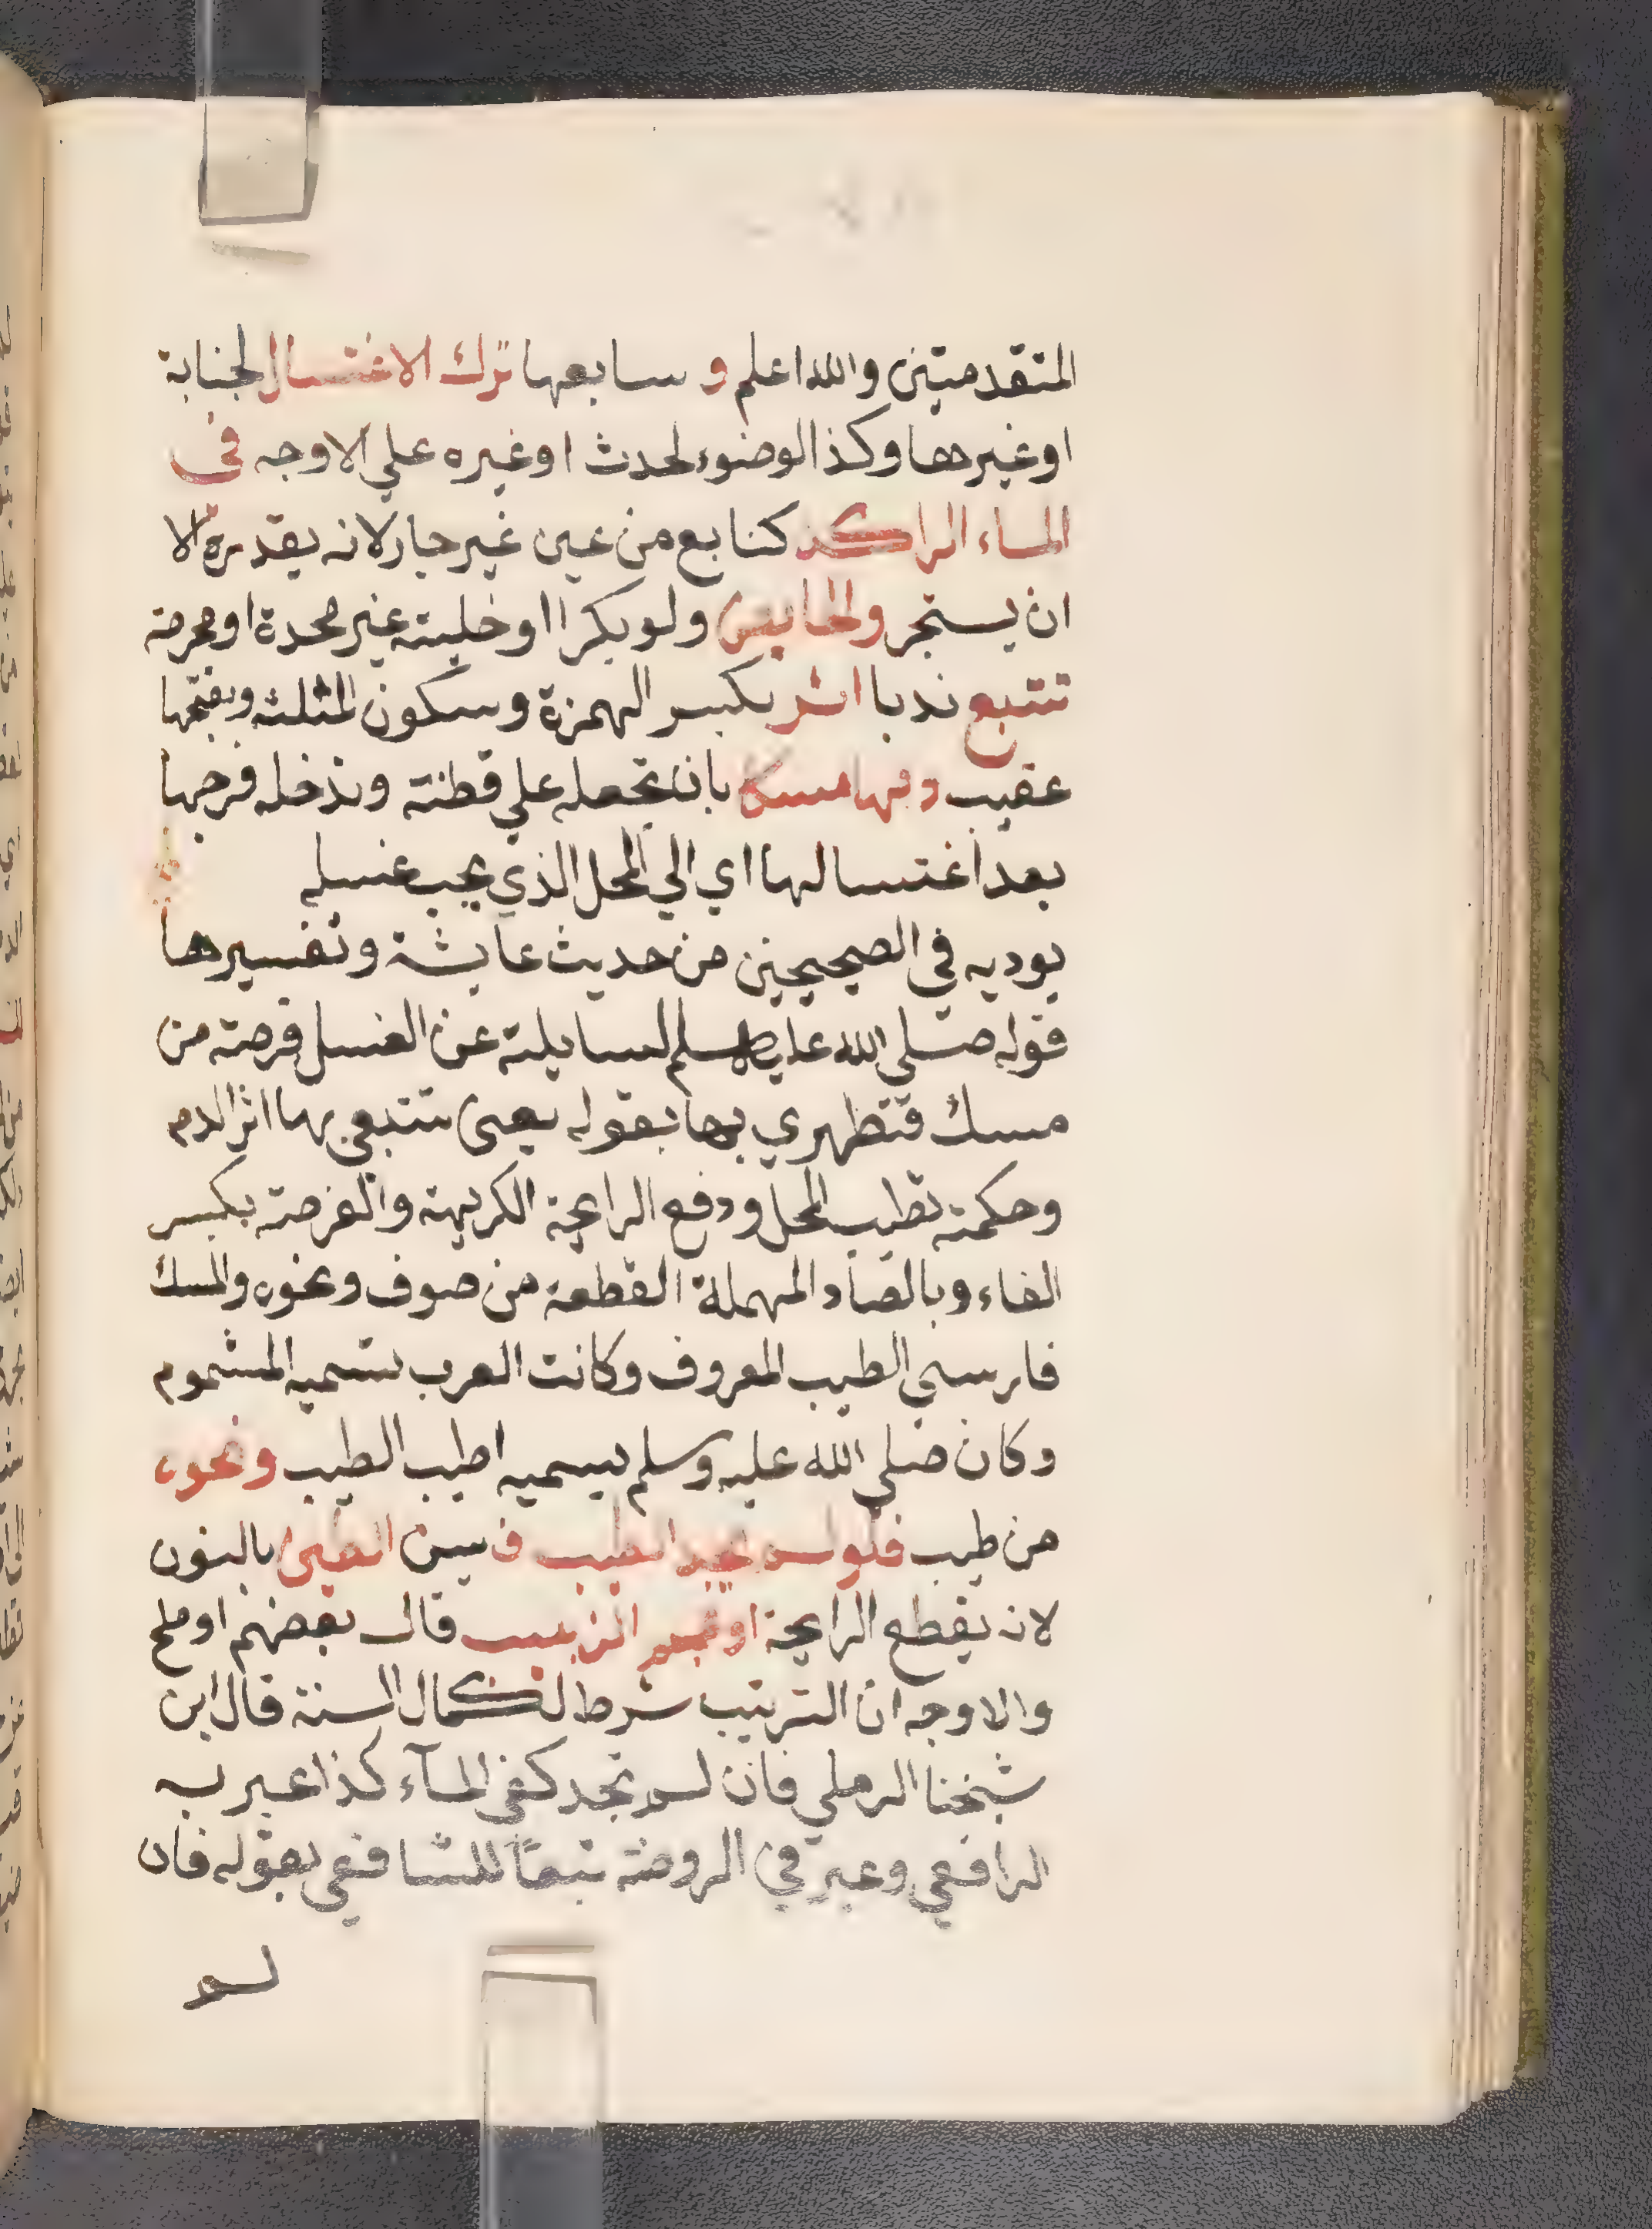 المتقدمتين والله اعلم و سابعها ترك الاغتسال لجنابة
او غيرها وكذا الوضوء لحدث او غيره علي الاوجه في
الماء الراكد كنابع من عين غير جار لانه يقدره الا
ان يستبحر والحايض ولو بكرا او خلية غير محدة او محرمة
تتبع ندبا اثر بكسر الهمزة وسكون المثلثة وبفتحها
عقيب دمها مسكا بان تجعله علي قطنة وتدخله فرجها
بعد اغتسالها اي الي المحل الذي يجب غسله
يوديه في الصحيحين من حديث عايشة وتفسيرها
قوله صلي الله عليه وسلم لسايلته عن الغسل فرصة من
مسك فتطهري بها بقوله يعني تتبعي بها اثر الدم
وحكمته تطيب المحل ودفع الرايحة الكريهة والفرصة بكسر
الفاء وبالصاد المهملة القطعة من صوف ونحوه والمسك
فارسي الطيب المعروف وكانت العرب تسميه المشموم
وكان صلي الله عليه وسلم يسميه اطيب الطيب ونحوه
من طيب فلو لم تجد الطيب ف يسن الطين بالنون
لانه يقطع الرايحة او نحو الزبيب قال بعضهم او ملح
والاوجه ان الترتيب شرط لكمال السنة قال ابن
شيخنا الرملي فان لم تجد كفي المآء كذا عبر به
الرافعي وعبر في الروضة تبعاً للشافعي بقوله فان
لم